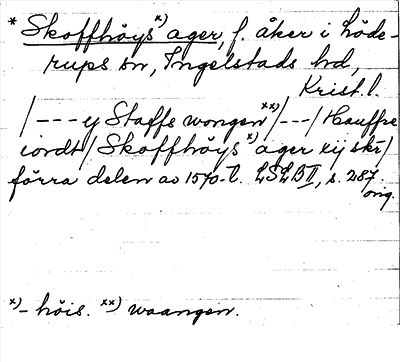 * Skoffhöys x) ager, f. åker i Löde-
rups sn, Ingelstads hd,
Krist. l.
/--- ej Staffs wongen xx)/---/ Hauffre
iordt/ Skoffhöys x) ager ej skr/
förra delen av 1570-t. LSLB II, s. 287.
orig.
x) - höis. xx) waangen.